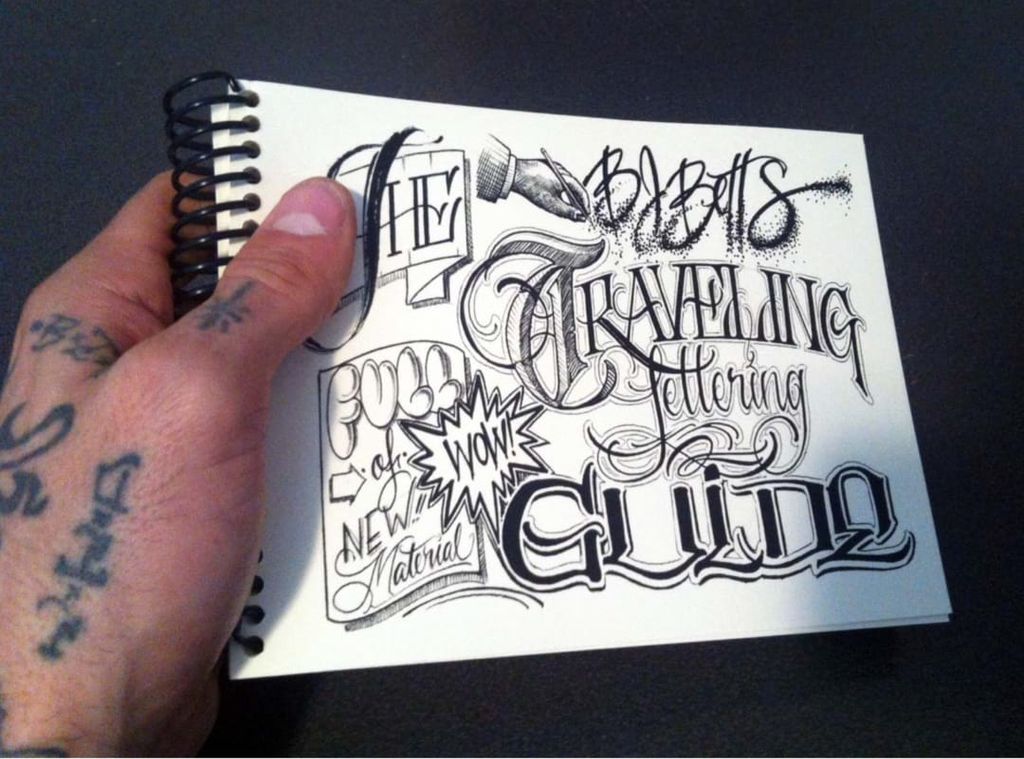 THE
BJ Betts
TRAVELING
lettering
GUIDE
FULL
of
NEW!!
Material
WOW!